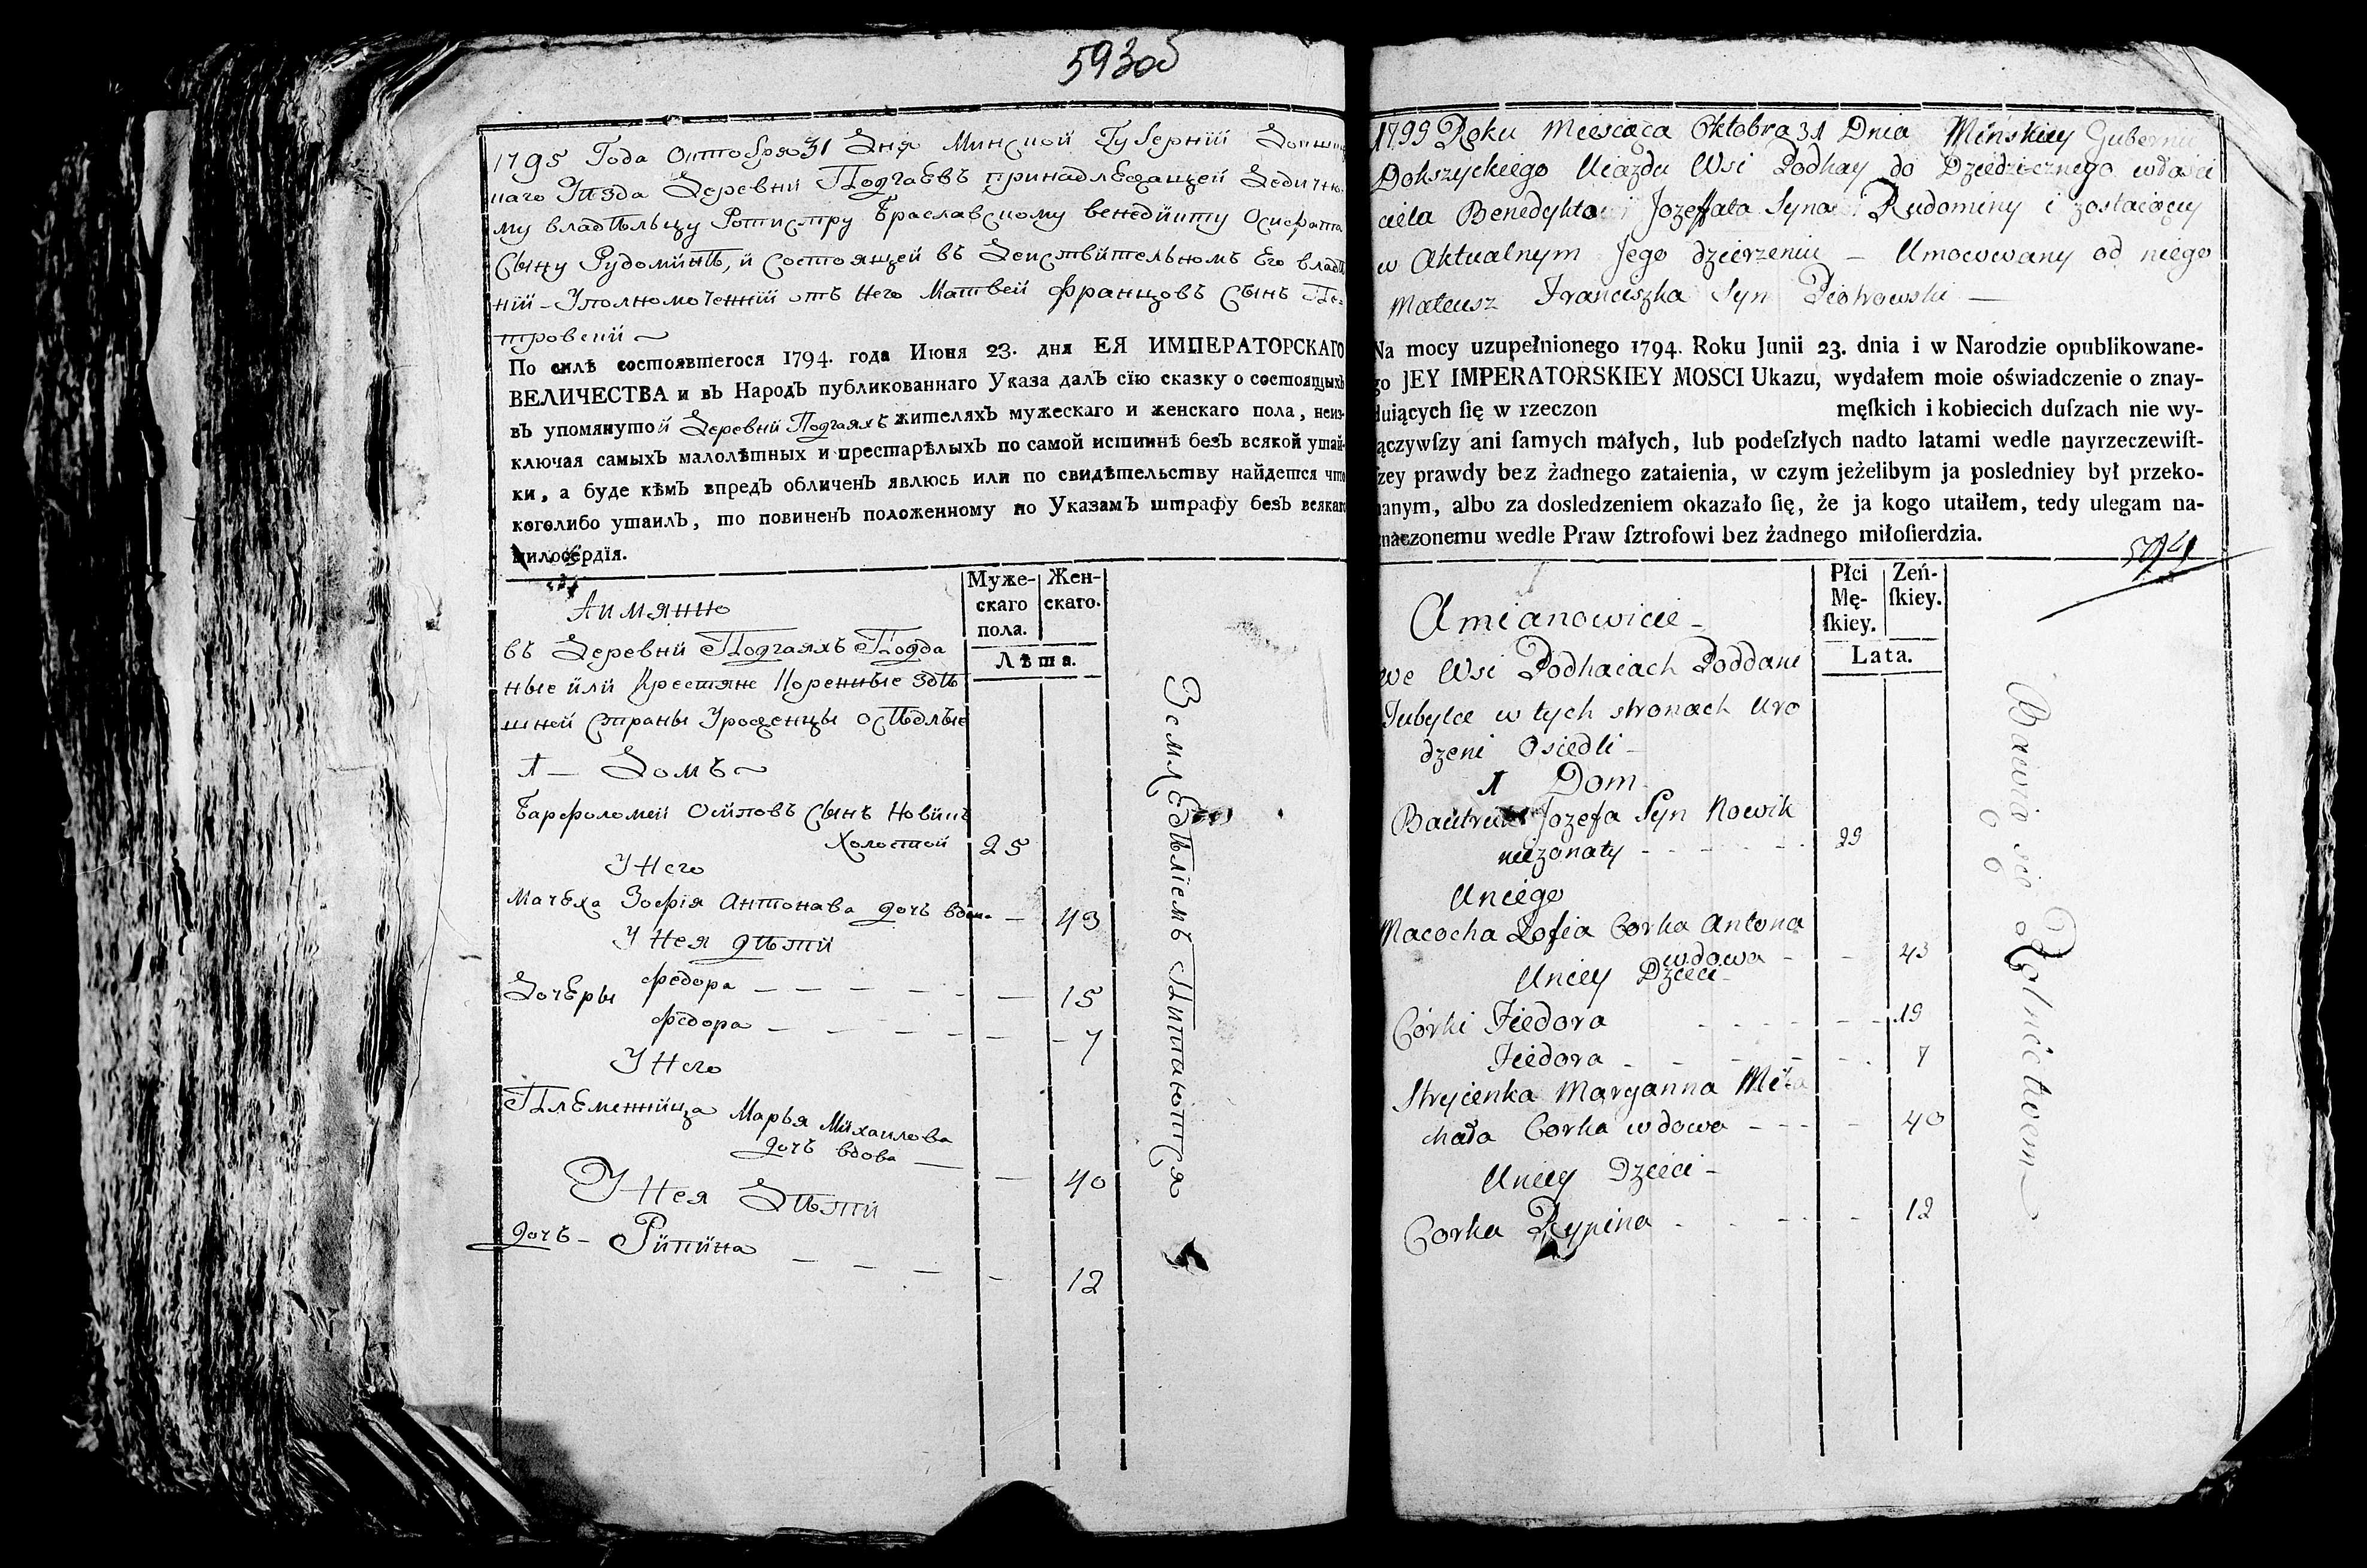 593об
1795 Года Октобря 31 Дня Минской Губернїй Докшиц
каго Уѣзда Деревни Подгаевъ принадлежащей Дедично
му владѣльцу Ротмистру Браславскому Венедикту Осафата
Сыну Рудоминѣ, и Состоящей въ Деиствительномъ Его владѣ
нїй – Уполномоченнїй отъ Него Матвей Францовъ Сынъ Пе-
тровскїй ~
По силѣ состоявшегося 1794. года Июня 23. дня ЕЯ ИМПЕРАТОРСКАГО
ВЕЛИЧЕСТВА и въ НародЪ публикованнаго Указа далЪ сїю сказку о состоящыхЪ
въ упомянутой Деревни Подгаяхъ жителяхЪ мужескаго и женскаго пола, неиз-
ключая самыхЪ малолѣтныхЪ и престарѣлыхЪ по самой истиннѣ безЪ всякой утай-
ки, а буде кѣмЪ впредЪ обличенЪ явлюсь или по свидѣтельству найдется что
коголибо утаилЪ, то повиненЪ положенному по УказамЪ штрафу безЪ всякаго
милосердїя.
Муже-
скаго
пола.
Жен-
скаго.
Лѣта.
Аимянно
въ Деревни Подгаяхъ Подда
ные или Крестяне Коренные здѣ
шней Страны Уроженцы осѣдлые
1 – Домъ ~
Барфоломей Осиповъ Сынъ Новикъ
Холостой 25
У Него
Мачеха Зофїя Антонава дочь вдова – 43
У Нея дѣти
Дочеры Федора – – – – – – 15
Федора – – – – – – 7
У Него
Племенница Марья Михаилова
дочь вдова – – 40
У Нея Дѣти
дочь – Рипина – – – – – 12
Земледѣлїемъ Питаются
1795 Roku Miesiąca Oktobra 31 Dnia Minskiey Gubernii
Dokszyckiego Uiazdu Wsi Podhay do Dziedzicznego właści
ciela Benedykta Jozeffata Syna Rudominy i zostaiącey
w Aktualnym Jego dzierzeniu – Umocowany od niego
Mateusz Franciszka Syn Piotrowski –
Na mocy uzupełnionego 1794. Roku Junii 23. dnia i w Narodzie opublikowane-
go JEY IMPERATORSKIEY MOSCI Ukazu, wydałem moie oświadczenie o znay-
duiących ſię w rzeczon męſkich i kobiecich duſzach nie wy-
łączywſzy ani ſamych małych, lub podeſzłych nadto latami wedle nayrzeczewiſt-
ſzey prawdy bez żadnego zataienia, w czym jeżelibym ja posledniey był przeko-
nanym, albo za dosledzeniem okazało ſię, że ja kogo utaiłem, tedy ulegam na-
znaczonemu wedle Praw ſztrofowi bez żadnego miłoſierdzia.
594
Płci
Mę-
ſkiey.
Zeń-
ſkiey.
Lata.
Amianowicie –
we Wsi Podhaiach Poddani
Tubylce w tych stronach Uro
dzeni Osiedli –
1 Dom
Bautruk Jozefa Syn Nowik
niezonaty – – – – 25
Uniego
Macocha Zofia Corka Antona
wdowa – – 43
Uniey Dzieci –
Córki Fiedora – – – – – – 15
Fiedora – – – – – 7
Stryienka Maryanna Micha
chała Corka wdowa – – – – 40
Uniey Dzieci –
Corka Rypina – – – – 12
Bawią się Rolnictwem